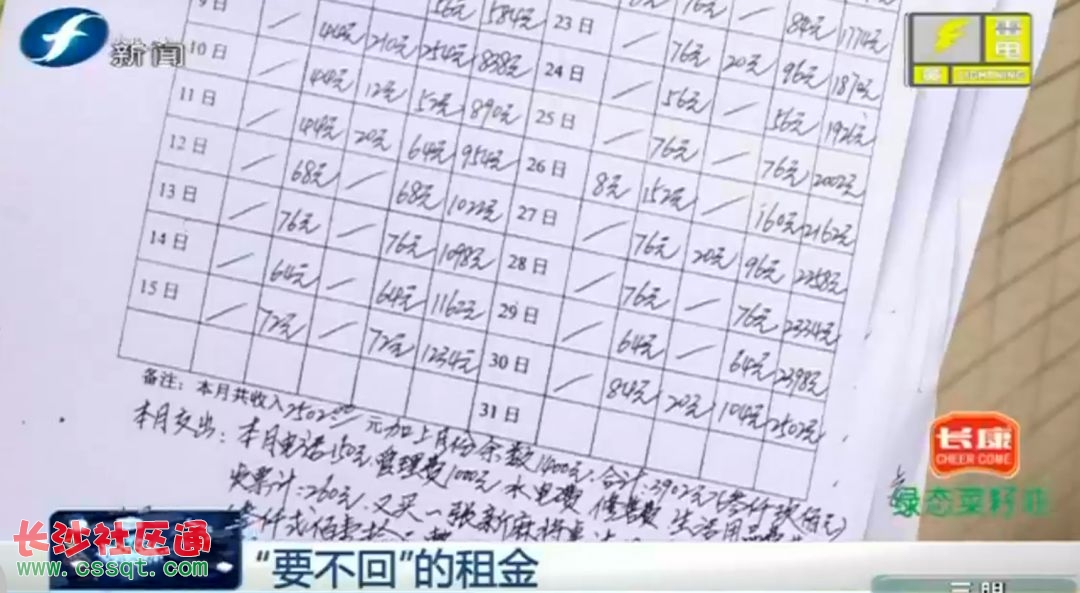 新闻
9日 56元 584元 23日 76元 84元 1774元
10日 / 44元 210元 254元 838元 24日 / 76元 20元 96元 1870元
11日 / 44元 12元 52元 890元 25日 / 56元 / 56元 1926元
12日 / 44元 20元 64元 954元 26日 / 76元 / 76元 2002元
13日 / 68元 / 68元 1022元 27日 8元 152元 / 160元 2162元
14日 / 76元 / 76元 1098元 28日 / 76元 20元 96元 2258元
15日 / 64元 / 64元 1162元 29日 / 76元 / 76元 2334元
/ 72元 / 72元 1234元 30日 / 64元 / 64元 2398元
31日 / 84元 20元 104元 2502元
备注：本月共收入2502.00元加上月份余数1400元，合计：3902元
本月支出：本月电话150元，管理费1000元，水电费
计：260元，又买一张新麻将桌
雷电
LIGHTNING
长康
CHEER COME
绿态菜籽油
长沙社区通
www.cssqt.com
“要不回”的租金
三明